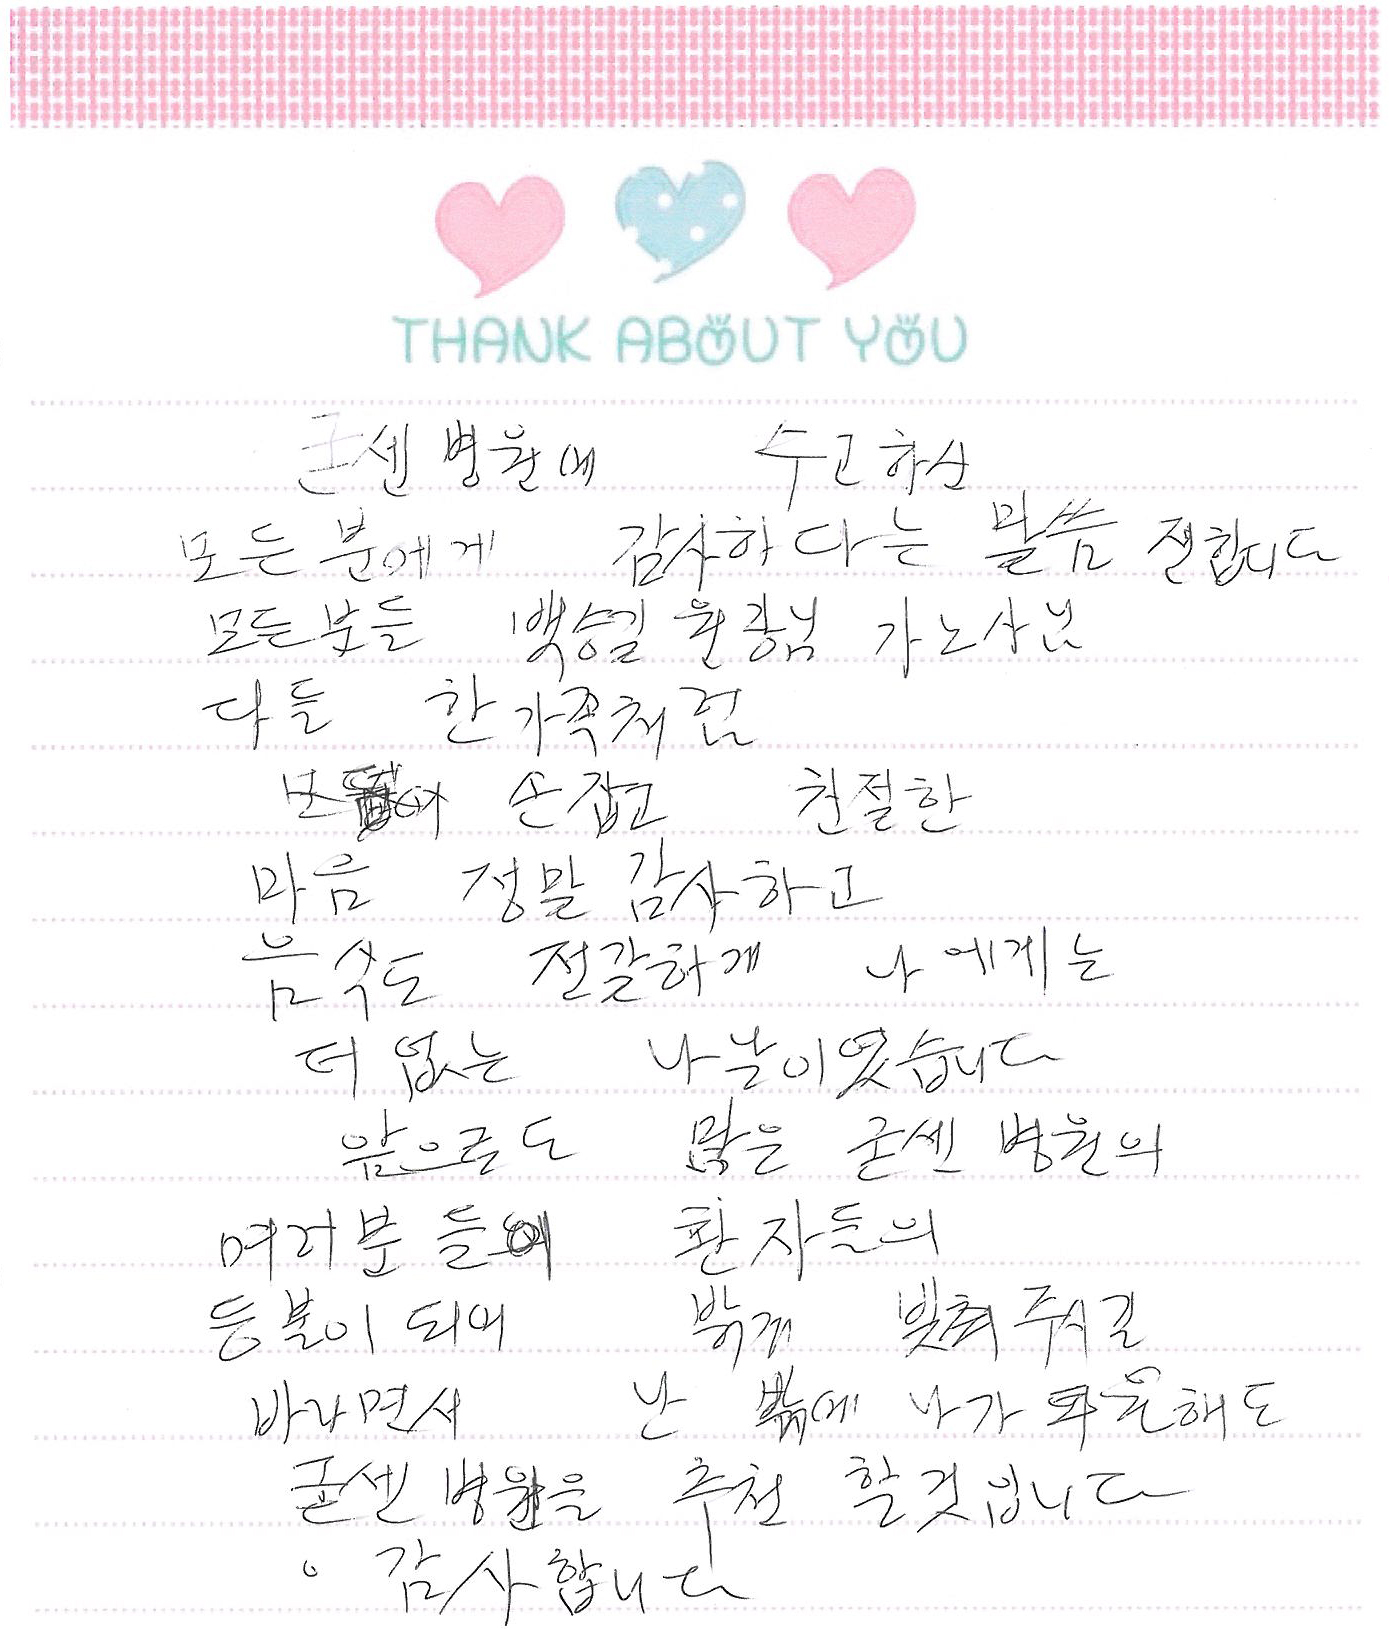 THANK ABOUT YOU
굳센 병원에 수고하신
모든 분에게 감사하다는 말씀 전합니다
모든분들 백승길 원장님 가노사님
다들 한가족처럼
손잡고 친절한
마음 정말 감사하고
음식도 전갈하게 나에게는
더 없는 나날이였습니다
앞으로도 많은 굳센 병원의
여러분들에 환자들의
등불이 되어 밝게 빛춰주시길
바라면서 난 밖에 나가 퇴원해도
굳센 병원을 추천 할것입니다
감사합니다